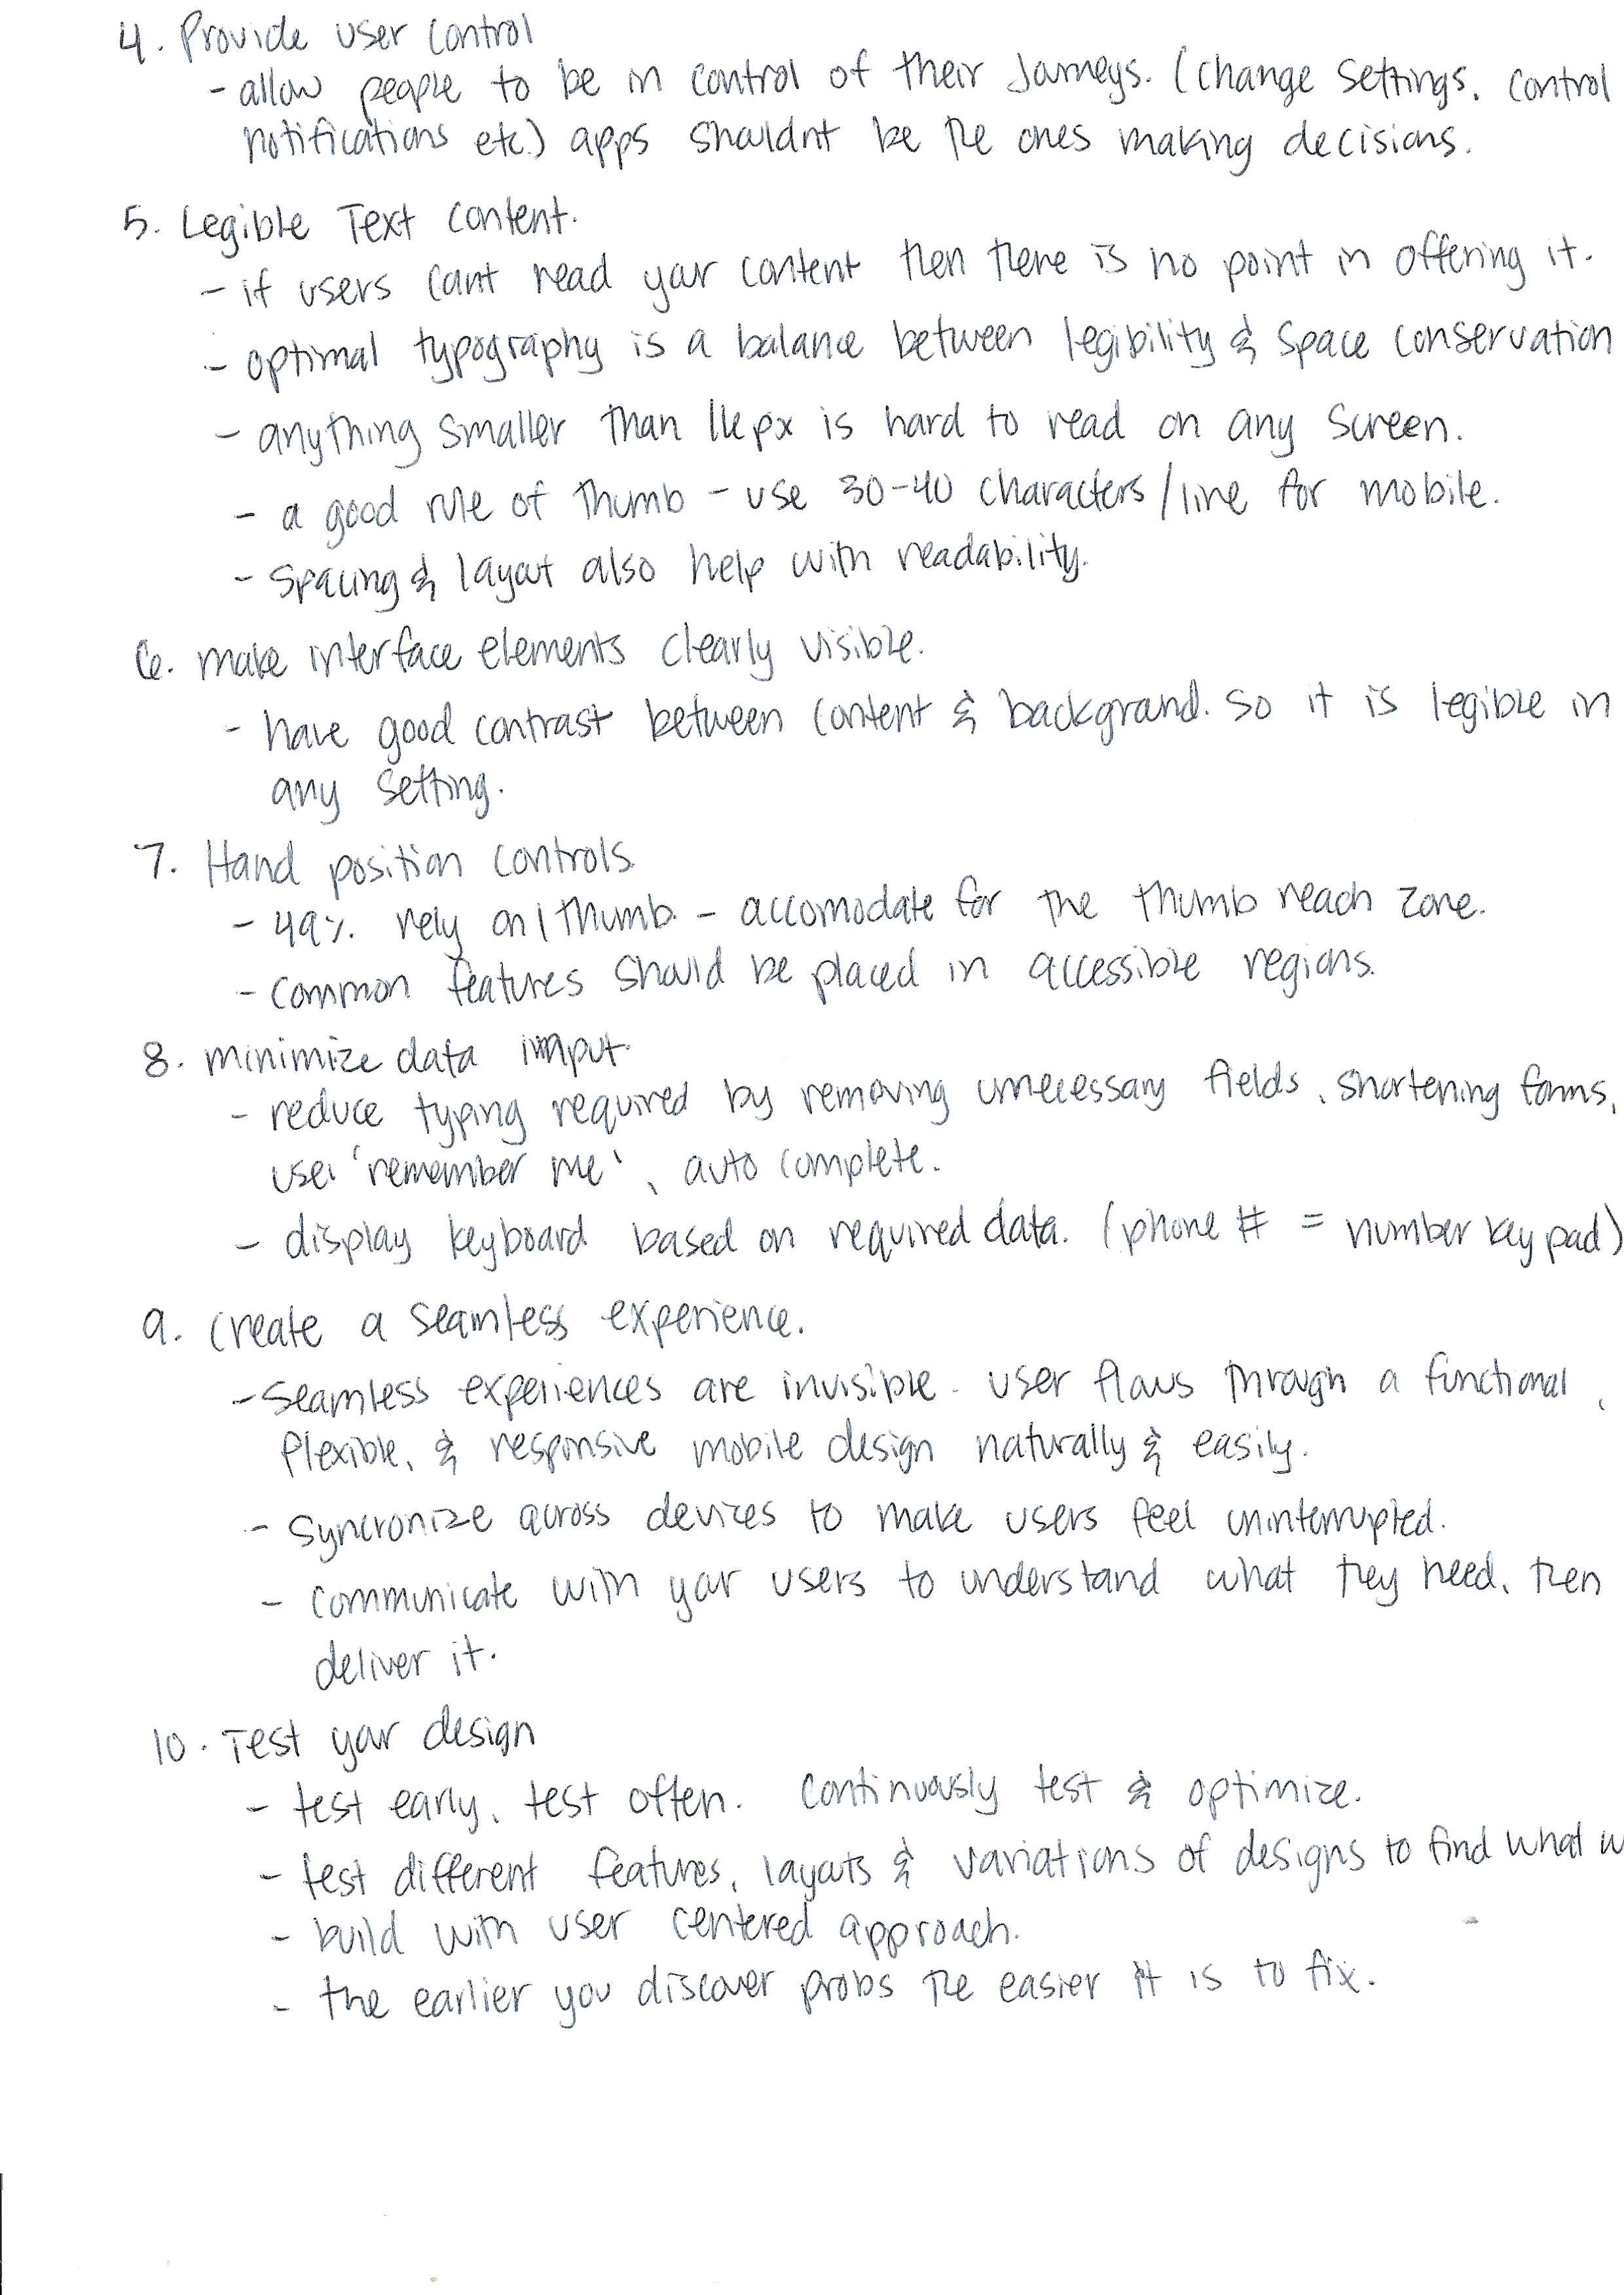 4. Provide user control
- allow people to be in control of their journeys. (change settings, control
notifications etc.) apps shouldnt be the ones making decisions.
5. Legible Text content.
- if users cant read your content then there is no point in offering it.
- optimal typography is a balance between legibility & space conservation
- anything smaller than 16px is hard to read on any screen.
- a good rule of thumb - use 30-40 characters/line for mobile.
- spacing & layout also help with readability.
6. make interface elements clearly visible.
- have good contrast between content & background. so it is legible in
any setting.
7. Hand position controls.
- 49% rely on 1 thumb. - accomodate for the thumb reach zone.
- common features should be placed in accessible regions.
8. minimize data input.
- reduce typing required by removing unnecessary fields, shortening forms,
use 'remember me', auto complete.
- display keyboard based on required data. (phone # = number key pad)
9. create a seamless experience.
- seamless experiences are invisible - user flows through a functional,
flexible, & responsive mobile design naturally & easily.
- syncronize across devices to make users feel uninterrupted.
- communicate with your users to understand what they need, then
deliver it.
10. Test your design
- test early, test often. Continuously test & optimize.
- test different features, layouts & variations of designs to find what
- build with user centered approach.
- the earlier you discover probs the easier it is to fix.